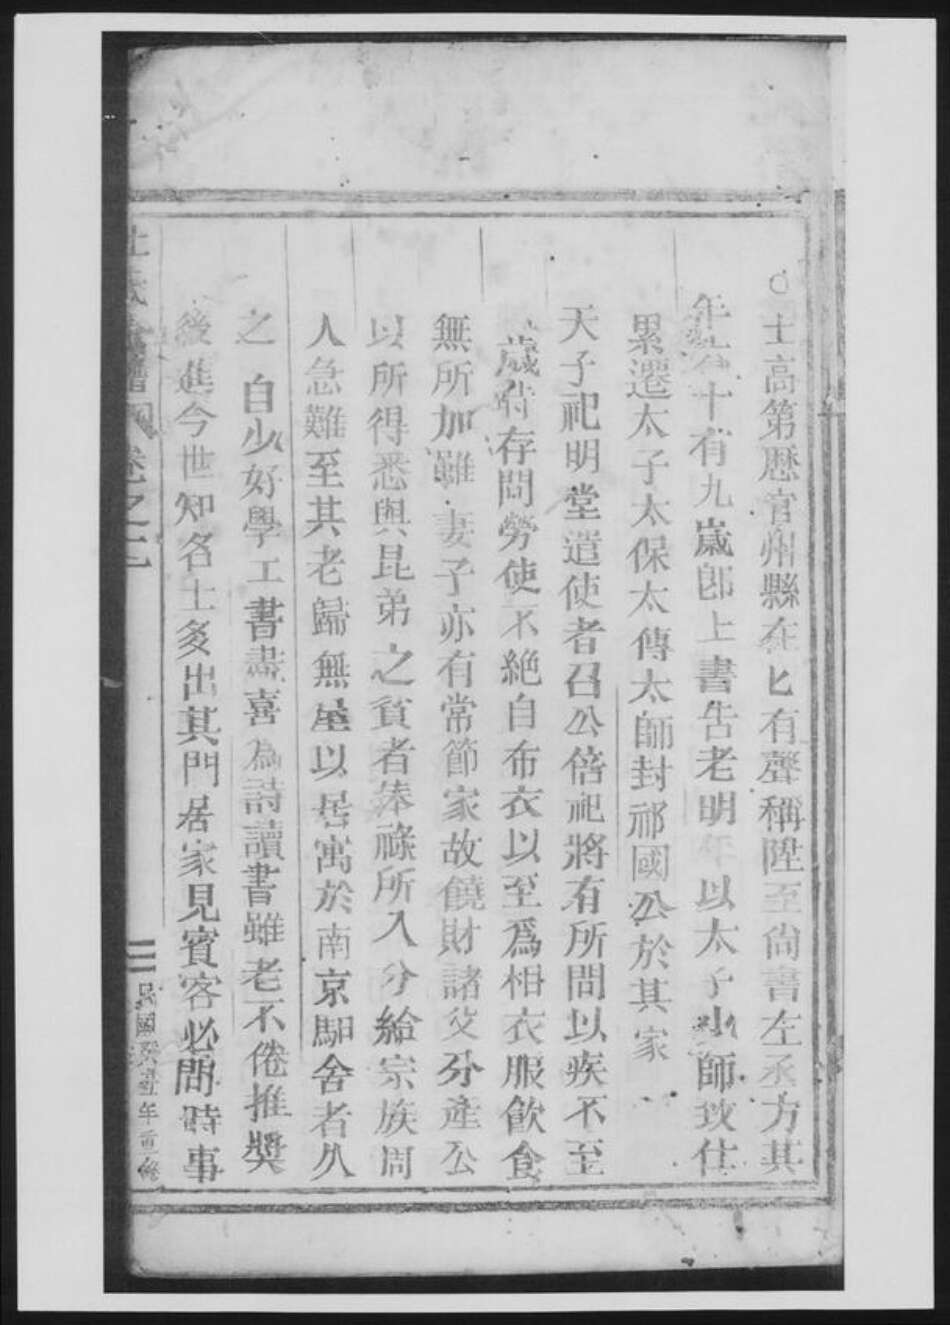 士高第歷官州縣在匕有聲稱陞至尚書左丞方其
年六十有九歲卽上書告老明年以太子少師致仕
累遷太子太保太傅太師封祁國公於其家
天子祀明堂遣使者召公倍祀將有所問以疾不至
歲時存問勞使不絕自布衣以至爲相衣服飲食
無所加雖妻子亦有常節家故饒財諸父分產公
以所得悉與昆弟之貧者俸祿所入分給宗族周
人急難至其老歸無屋以居寓於南京馹舍者久
之 自少好學工書畫喜為詩讀書雖老不倦推獎
後進今世知名士多出其門居家見賓客必問時事
杜氏 譜 卷之 二
民國癸丑年重修